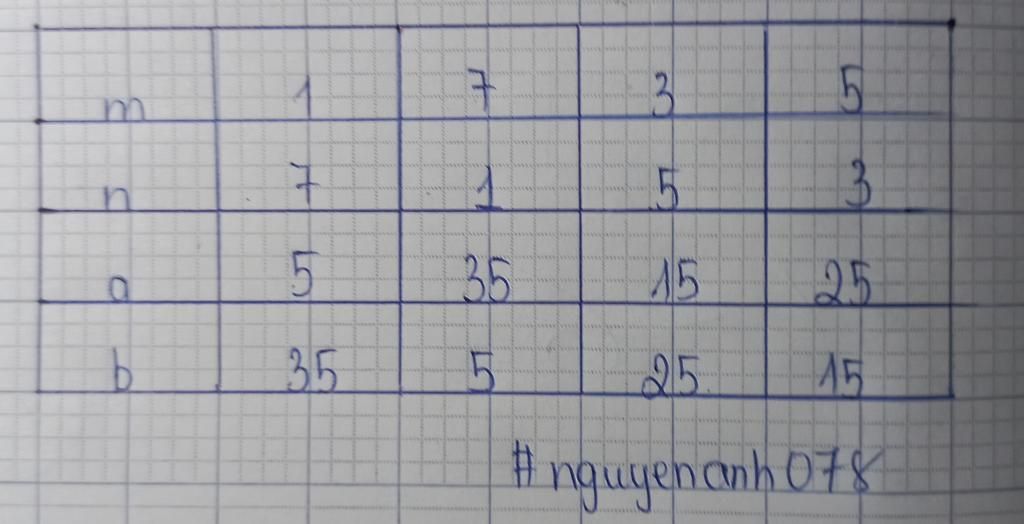 m 1 7 3 5
n 7 1 5 3
a 5 35 15 25
b 35 5 25 15
#nguyenanh078